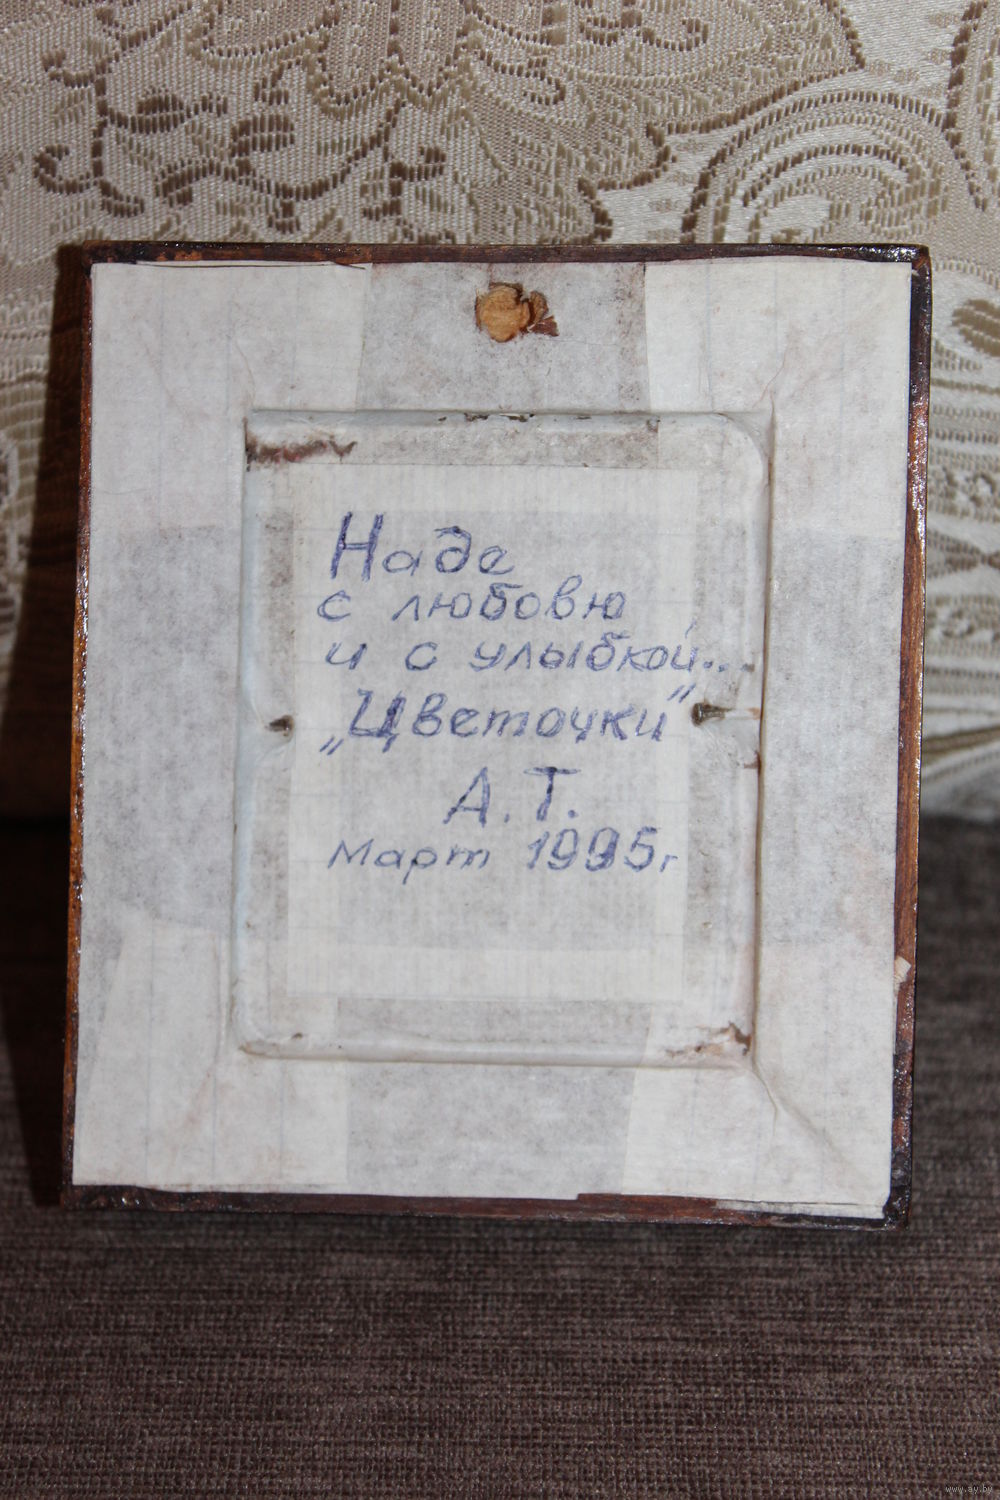 Наде
с любовю
и с улыбкой...
„Цветочки”
А. Т.
Март 1995г
www.ay.by